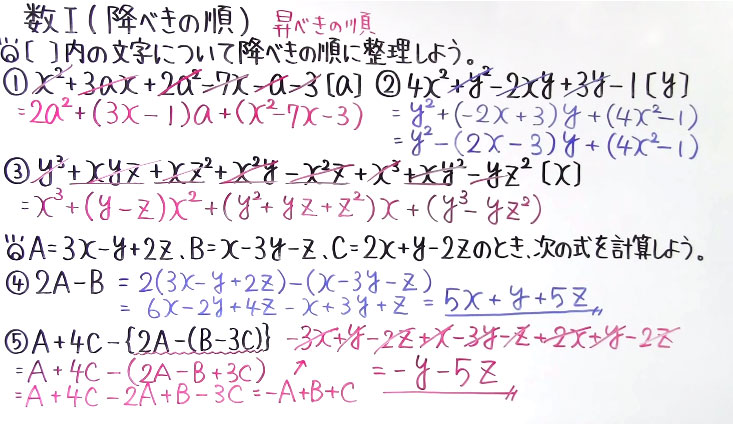 数I(降べきの順) 昇べきの順
[ ]内の文字について降べきの順に整理しよう。
① x²+3ax+2a²-7x-a-3[a] ② 4x²+y²-2xy+3y-1[y]
=2a²+(3x-1)a+(x²-7x-3) = y²+(-2x+3)y+(4x²-1)
= y²-(2x-3)y+(4x²-1)
③ y³+xyz+xz²+x²y-x²z+x³+xy²-yz²[x]
=x³+(y-z)x²+(y²+yz+z²)x+(y³-yz²)
A=3x-y+2z、B=x-3y-z、C=2x+y-2zのとき、次の式を計算しよう。
④ 2A-B = 2(3x-y+2z)-(x-3y-z)
= 6x-2y+4z-x+3y+z = 5x+y+5z
⑤ A+4C-{2A-(B-3C)} -3x+y-2z+x-3y-z+2x+y-2z
=A+4C-(2A-B+3C) ↗ =-y-5z
=A+4C-2A+B-3C=-A+B+C